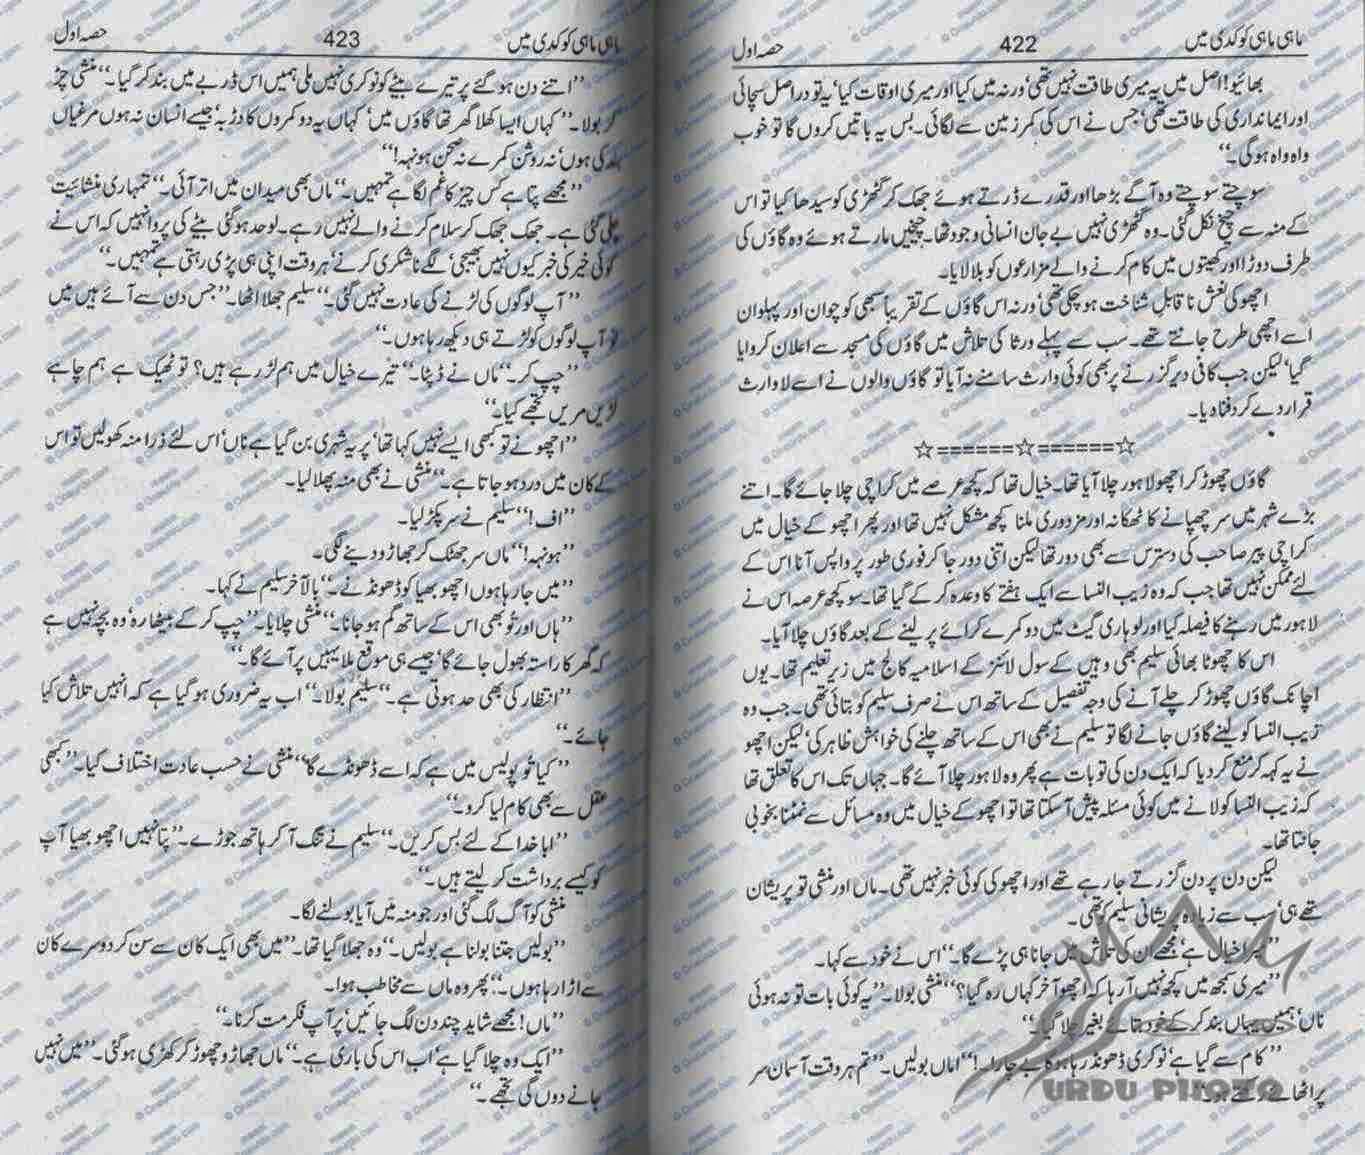 ماہی ماہی کوکدی میں 422 حصہ اول
بھائیو! اصل میں یہ میری طاقت نہیں تھی، ورنہ میں کیا اور میری اوقات کیا، یہ تو دراصل سچائی
اور ایمانداری کی طاقت تھی، جس نے اس کی کمر زمین سے لگائی۔ بس یہ باتیں کروں گا تو خوب
واہ واہ ہوگی۔‘‘
سوچتے سوچتے وہ آگے بڑھا اور قدرے ڈرتے ہوئے جھک کر گٹھڑی کو سیدھا کیا تو اس
کے منہ سے چیخ نکل گئی۔ وہ گٹھڑی نہیں بے جان انسانی وجود تھا۔ چیخیں مارتے ہوئے وہ گاؤں کی
طرف دوڑا اور کھیتوں میں کام کرنے والے مزارعوں کو بلا لایا۔
اچھو کی نعش ناقابلِ شناخت ہوچکی تھی، ورنہ اس گاؤں کے تقریباً سبھی کو جوان اور پہلوان
اسے اچھی طرح جانتے تھے۔ سب سے پہلے ورثا کی تلاش میں گاؤں کی مسجد سے اعلان کروایا
گیا، لیکن جب کافی دیر گزرنے پر بھی کوئی وارث سامنے نہ آیا تو گاؤں والوں نے اسے لاوارث
قرار دے کر دفنا دیا۔
☆======☆======☆
گاؤں چھوڑ کر اچھو لاہور چلا آیا تھا۔ خیال تھا کہ کچھ عرصے میں کراچی چلا جائے گا۔ اتنے
بڑے شہر میں سر چھپانے کا ٹھکانہ اور مزدوری ملنا کچھ مشکل نہیں تھا اور پھر اچھو کے خیال میں
کراچی پیر صاحب کی دسترس سے بھی دور تھا لیکن اتنی دور جا کر فوری طور پر واپس آنا اس کے
لئے ممکن نہیں تھا جب کہ وہ زیب النسا سے ایک ہفتے کا وعدہ کر کے گیا تھا۔ سو کچھ عرصہ اس نے
لاہور میں رہنے کا فیصلہ کیا اور لوہاری گیٹ میں دو کمرے کرائے پر لینے کے بعد گاؤں چلا آیا۔
اس کا چھوٹا بھائی سلیم بھی وہیں کے سول لائنز کے اسلامیہ کالج میں زیرِ تعلیم تھا۔ یوں
اچانک گاؤں چھوڑ کر چلے آنے کی وجہ تفصیل کے ساتھ اس نے صرف سلیم کو بتائی تھی۔ جب وہ
زیب النسا کو لینے گاؤں جانے لگا تو سلیم نے بھی اس کے ساتھ چلنے کی خواہش ظاہر کی، لیکن اچھو
نے یہ کہہ کر منع کر دیا کہ ایک دن کی تو بات ہے پھر وہ لاہور چلا آئے گا۔ جہاں تک اس کا تعلق تھا
کہ زیب النسا کو لانے میں کوئی مسئلہ پیش آسکتا تھا تو اچھو کے خیال میں وہ مسائل سے نمٹنا بخوبی
جانتا تھا۔
لیکن دن پر دن گزرتے جا رہے تھے اور اچھو کی کوئی خبر نہیں تھی۔ ماں اور منشی تو پریشان
تھے ہی، سب سے زیادہ پریشانی سلیم کو تھی۔
’’میرا خیال ہے، مجھے ان کی تلاش میں جانا ہی پڑے گا۔‘‘ اس نے خود سے کہا۔
’’میری سمجھ میں کچھ نہیں آ رہا کہ اچھو آخر کہاں رہ گیا؟‘‘ منشی بولا۔ ’’یہ کوئی بات تو نہ ہوئی
ناں، ہمیں یہاں بند کر کے خود بتائے بغیر چلا گیا۔‘‘
’’کام سے گیا ہے، نوکری ڈھونڈ رہا ہے وہ بے چارا۔!‘‘ اماں بولیں۔ ’’تم ہر وقت آسمان سر
پر اٹھائے رکھتے ہو۔‘‘
URDU PHOTO
ماہی ماہی کوکدی میں 423 حصہ اول
’’اتنے دن ہو گئے پر تیرے بیٹے کو نوکری نہیں ملی ہمیں اس ڈربے میں بند کر گیا۔‘‘ منشی چڑ
کر بولا۔ ’’کہاں ایسا کھلا گھر تھا گاؤں میں، کہاں یہ دو کمروں کا دڑبہ، جیسے انسان نہ ہوں مرغیاں
بند کی ہوں، نہ روشن کمرے نہ صحن ہونہہ!‘‘
’’مجھے پتا ہے کس چیز کا غم لگا ہے تمہیں۔‘‘ ماں بھی میدان میں اتر آئی۔ ’’تمہاری منشائیت
چلی گئی ہے۔ جھک جھک کر سلام کرنے والے نہیں رہے۔ لو حد ہوگئی بیٹے کی پروا نہیں کہ اس نے
کوئی خیر کی خبر کیوں نہیں بھیجی، لگے ناشکری کرنے، ہر وقت اپنی ہی پڑی رہتی ہے تمہیں۔‘‘
’’آپ لوگوں کی لڑنے کی عادت نہیں گئی۔‘‘ سلیم جھلا اٹھا۔ ’’جس دن سے آئے ہیں میں
تو آپ لوگوں کو لڑتے ہی دیکھ رہا ہوں۔‘‘
’’چپ کر۔‘‘ ماں نے ڈپٹا۔ ’’تیرے خیال میں ہم لڑ رہے ہیں؟ تو ٹھیک ہے ہم چاہے
لڑیں مریں تجھے کیا۔‘‘
’’اچھو نے تو کبھی ایسے نہیں کہا تھا، پر یہ شہری بن گیا ہے ناں، اس لئے ذرا منہ کھولیں تو اس
کے کان میں درد ہو جاتا ہے۔‘‘ منشی نے بھی منہ پھلا لیا۔
’’اف!‘‘ سلیم نے سر پکڑ لیا۔
’’ہونہہ!‘‘ ماں سر جھٹک کر جھاڑو دینے لگی۔
’’میں جا رہا ہوں اچھو بھیا کو ڈھونڈنے۔‘‘ بالآخر سلیم نے کہا۔
’’ہاں اور تُو بھی اس کے ساتھ گم ہو جانا۔‘‘ منشی چلایا۔ ’’چپ کر کے بیٹھا رہ، وہ بچہ نہیں ہے
کہ گھر کا راستہ بھول جائے گا، جیسے ہی موقع ملا یہیں پر آئے گا۔‘‘
’’انتظار کی بھی حد ہوتی ہے۔‘‘ سلیم بولا۔ ’’اب یہ ضروری ہو گیا ہے کہ انہیں تلاش کیا
جائے۔‘‘
’’کیا تُو پولیس میں ہے کہ اسے ڈھونڈے گا‘‘ منشی نے حسب عادت اختلاف کیا۔ ’’کبھی
عقل سے بھی کام لیا کرو۔‘‘
’’ابا خدا کے لئے بس کریں۔‘‘ سلیم نے تنگ آ کر ہاتھ جوڑے۔ ’’پتا نہیں اچھو بھیا آپ
کو کیسے برداشت کر لیتے ہیں۔‘‘
منشی کو آگ لگ گئی اور جو منہ میں آیا بولنے لگا۔
’’بولیں جتنا بولنا ہے بولیں۔‘‘ وہ جھلا گیا تھا۔ ’’میں بھی ایک کان سے سن کر دوسرے کان
سے اڑا رہا ہوں۔‘‘ پھر وہ ماں سے مخاطب ہوا۔
’’ماں! مجھے شاید چند دن لگ جائیں، پر آپ فکر مت کرنا۔‘‘
’’ایک وہ چلا گیا ہے، اب اس کی باری ہے۔‘‘ ماں جھاڑو چھوڑ کر کھڑی ہوگئی۔ ’’میں نہیں
جانے دوں گی تجھے۔‘‘